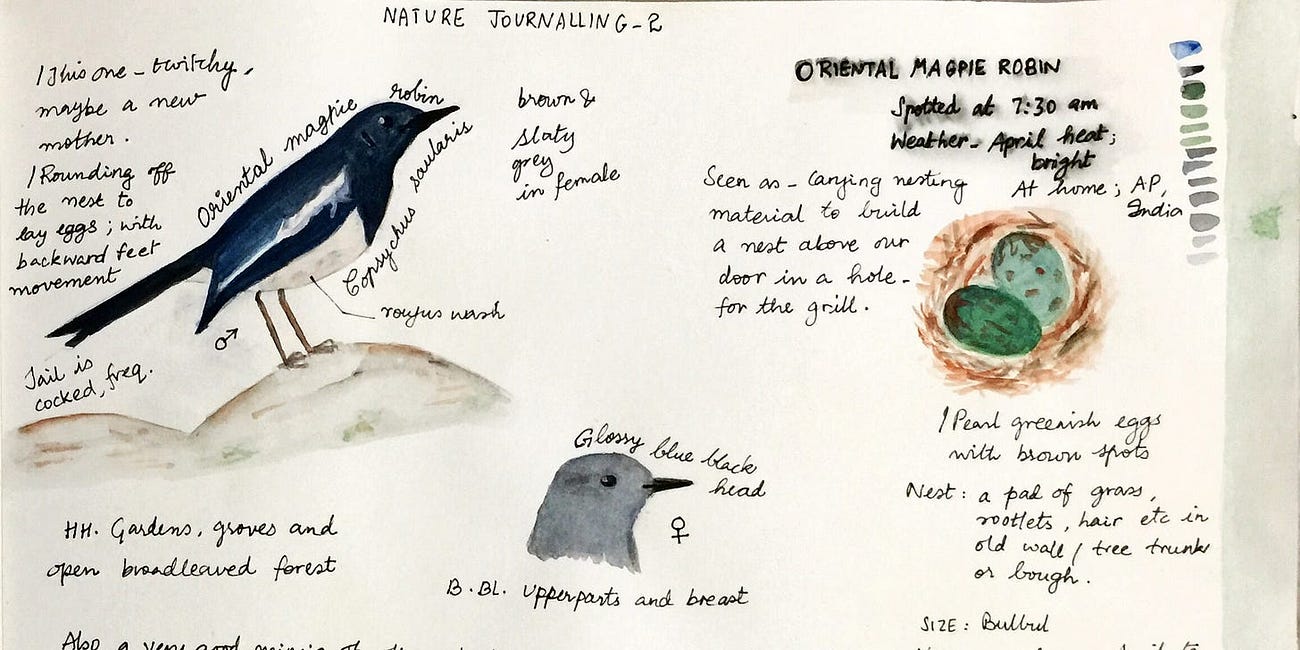 NATURE JOURNALLING-2
/This one - twitchy,
maybe a new
mother.
/Rounding off
the nest to
lay eggs ; with
backward feet
movement
Tail is
cocked, freq.
Oriental magpie robin
Copsychus saularis
♂
roufus wash
brown &
slaty
grey
in female
ORIENTAL MAGPIE ROBIN
Spotted at 7:30 am
Weather - April heat;
bright
At home ; AP,
India
Seen as - Carying nesting
material to build
a nest above our
door in a hole -
for the grill.
/Pearl greenish eggs
with brown spots
Nest : a pad of grass,
rootlets, hair etc in
old wall / tree trunks
or bough.
SIZE : Bulbul
Glossy blue black
head
♀
B.BL. upperparts and breast
HH. Gardens, groves and
open broadleaved forest
Also a very good mimic of